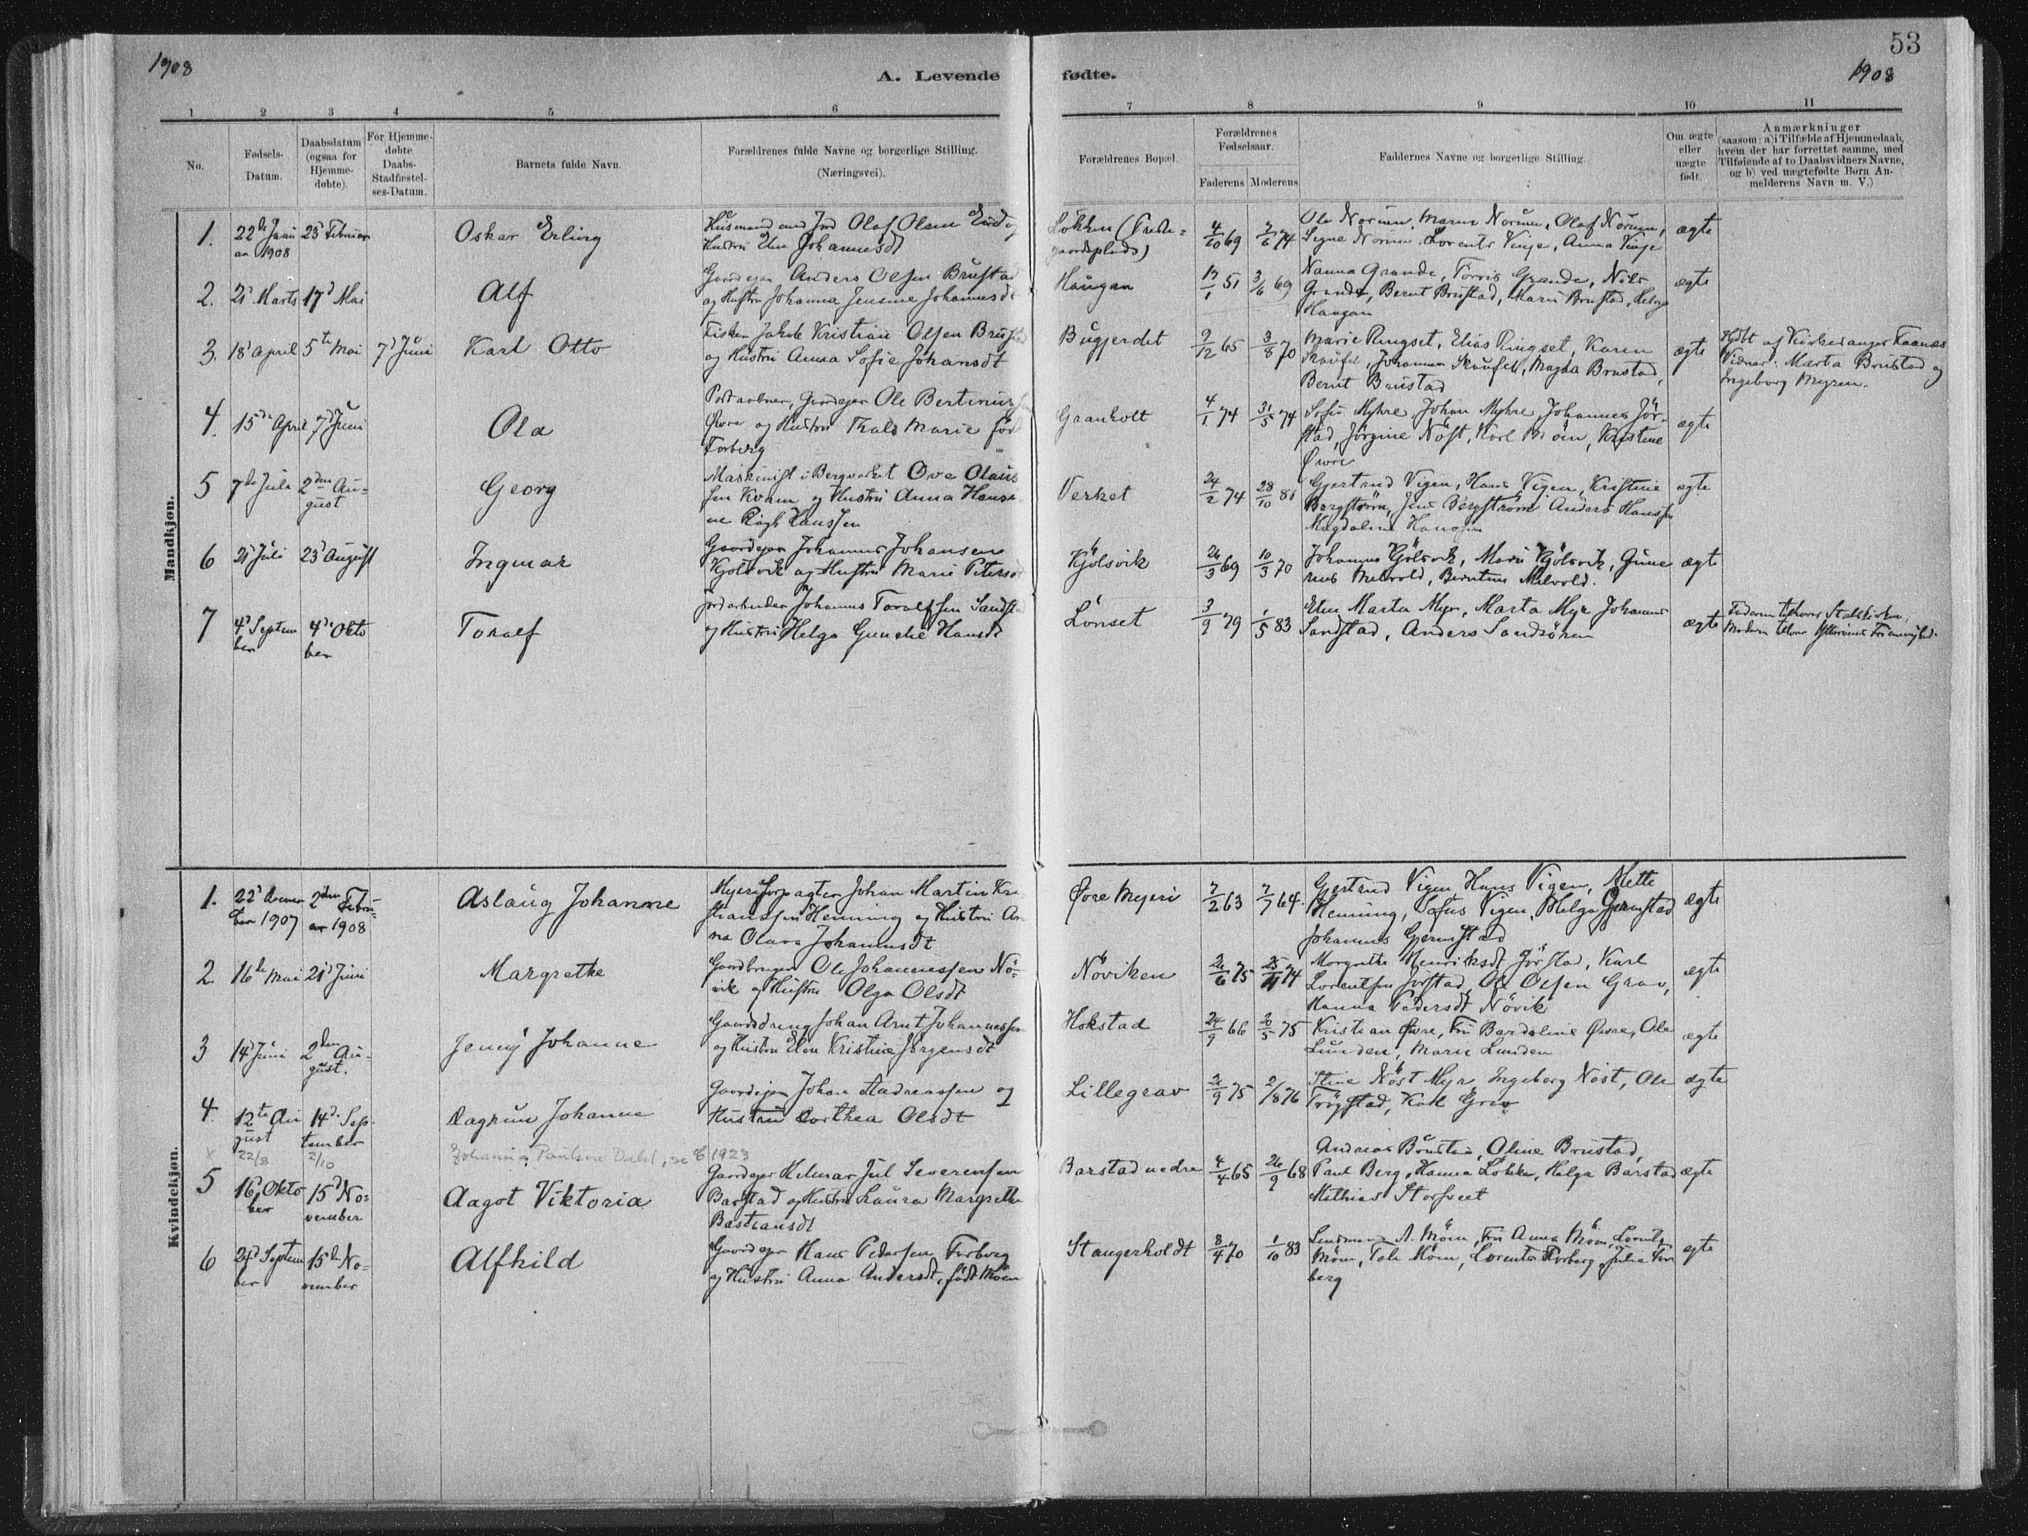 1908
A. Levende
fødte.
53
1908
1 2 3 4 5 6 7 8 9 10 11
No.
Fødsels-
Datum.
Daabsdatum
(ogsaa for
Hjemme-
døbte).
For Hjemme-
døbte
Daabs-
Stadfæstel-
ses-Datum.
Barnets fulde Navn.
Forældrenes fulde Navne og borgerlige Stilling.
(Næringsvei).
Forældrenes Bopæl.
Forældrenes
Fødselsaar.
Faderens Moderens
Faddernes Navne og borgerlige Stilling.
Om ægte
eller
uægte
født.
Anmærkninger
(saasom: a) i Tilfælde af Hjemmedaab,
hvem der har forrettet samme, med
Tilføiende af to Daabsvidners Navne,
og b) ved uægtefødte Børn An-
melderens Navn m. V.)
Mandkjøn.
1. 22de Janu
ar 1908
23de Februar
Oskar Erling
Husmand med Jord Olaf Olsen
Hustru Elen Johannesdt
Løkken
gaardsplads)
4/10 69 7/6 74
Ole Norum, Marie Norum, Olaf Norum,
Signe Norum, Lorents Vinje, Anna Vinje
ægte
2. 21 Marts 17d Mai
Alf
Gaardejer Anders Olsen Brustad
og Hustru Johanna Jensine Johannesdt
Haugan
13/1 51 3/6 69
Nanna Grande, Torris Grande, Nils
Grande, Bernt Brustad, Marie Brustad, Helga
Haugan
ægte
3. 18d April 5te Mai 7d Juni
Karl Otto
Fisker Jakob Kristian Olsen Brustad
og Hustru Anna Sofie Johansdt
Bugjerdet
9/12 65 3/8 70
Marie Ringset, Elias Ringset, Karen
Skaufel, Johannes Skaufel, Magda Brustad,
Bernt Brustad
ægte
Hjdbt af Kirkesanger Faanes
Vidner: Marta Brustad og
Ingeborg Myren.
4. 15de April 7d Juni
Ola
Postaabner, Gaardejer Ole Bertinus
Øvre og Hustru Marie født
Forberg
Granholt
4/1 74 31/5 74
Sofie Myhre, Johan Myhre, Johannes Jør-
stad, Jørgine Nøst, Karl Moen, Kristine
Øvre
ægte
5 7de Juli 2den Au-
gust
Georg
Maskinist i Bergverket Ove Olaus
sen Kvam og Hustru Anna Hansi-
ne Hanssen
Verket
24/2 74 28/10 81
Gjertrud Vigen, Hans Vigen, Kristine
Bergstrøm, Jens Bergstrøm Anders Hanssen
Magdalena
ægte
6 21d Juli 23d August
Ingmar
Gaardejer Johannes Johansen
Kjølsvik og Hustru Marie Petersdt
Kjølsvik
26/3 69 10/3 70
Johannes Kjølsvik, Marie Kjølsvik, Gune
rius Melvold, Berntine Melvold.
ægte
7 4d Septem
ber
4de Okto
ber
Toralf
Jordarbeider Johannes Toralfsen Sandstad
og Hustru Helga Hansdt
Lønset
3/9 79 1/5 83
Elen Marta Myr, Marta Myr Johannes
Sandstad, Anders
ægte
Faderen tilhører Statskirken,
Moderen tilhører Frimenighed.
Kvindekjøn.
1. 22d Decem
ber 1907
2den Febru-
ar 1908
Aslaug Johanne
Meieriforpagter Johan Martin Kri
stianssen Henning og Hustru An
na Olava Johannesdt
Øvre Mejeri
7/2 63 7/7 64
Gjertrud Vigen Hans Vigen, Mette
Henning, Sofus Vigen, Helga Gjermstad
Johannes Gjermstad
ægte
2. 16de Mai 21d Juni
Margrethe
Gaardbruger Ole Johannessen Nø-
vik og Hustru Olga Olsdt
Nøviken
Margrethe Henriksdt Jørstad, Karl
Lorentsen Jørstad, Ole Olsen Grav,
Hanna Pedersdt Nøvik
ægte
3 14d Juni 2den Au-
gust.
Jenny Johanne
Gaardsdreng Johan Arnt Johannessen
og Hustru Elen Kristine Jørgensdt
Hokstad
24/9 66 20/5 75
Kristian Øvre, Fru Bardoline Øvre, Ole
Lunden, Marie Lunden
ægte
4. 12te Au
gust
14d Sep-
tember
Dagrun Johanne
Gaardejer Johan Andreassen og
Hustru Dorthea Olsdt
Lillegrav
Stine Nøst Myr, Ingeborg Nøst, Ole
Trøgstad, Karl Grav
ægte
22/8 2/10
Johanna Pauline Dahl, 1923
5 16 Okto
ber
15d No-
vember
Aagot Viktoria
Gaardejer Hilmar Jul Severensen
Barstad og Hustru Laura Margrethe
Bastiansdt
Barstad nedre
4/4 65 26/9 68
Andreas Brustad, Oline Brustad,
Paul Berg, Hanna Løkken, Helga Barstad
Mathias Storhveet
ægte
6 24d Septem
ber
15de No-
vember
Alfhild
Gaardejer Hans Pedersen Forberg
og Hustru Anna Andersdt, født Moen
Stangerholdt
8/4 70 1/10 83
A. Møen, Fru Anna Møen, Lorents
Møen, Møen, Lorents Forberg, Julie For
berg
ægte